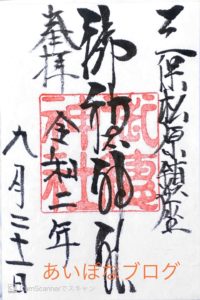 三保松原鎮座
御穂神社
奉拝
令和二年
九月二十一日
あいぼなブログ
CamScannerでスキャン